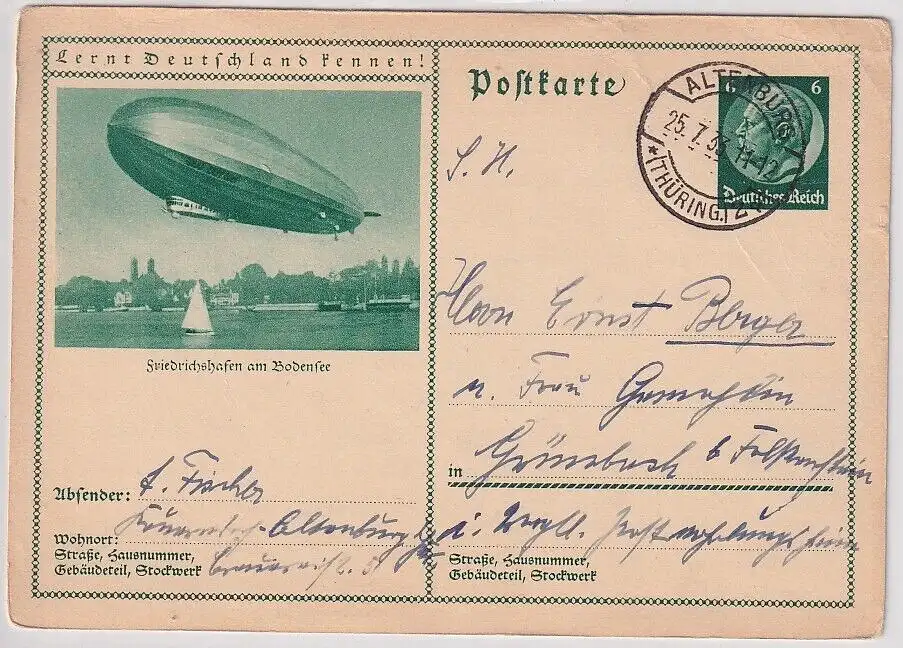 Lernt Deutschland kennen!
Friedrichshafen am Bodensee
Absender: A. Fischer
Wohnort: Altenburg
Straße, Hausnummer,
Gebäudeteil, Stockwerk
Postkarte
6 6
Deutsches Reich
ALTENBURG
25.7.33. 11-12
* (THÜRING.) 2
S. H.
Herrn Ernst Berger
u. Frau Gemahlin
in Grünebach b
i. Vogtl.
Straße, Hausnummer,
Gebäudeteil, Stockwerk